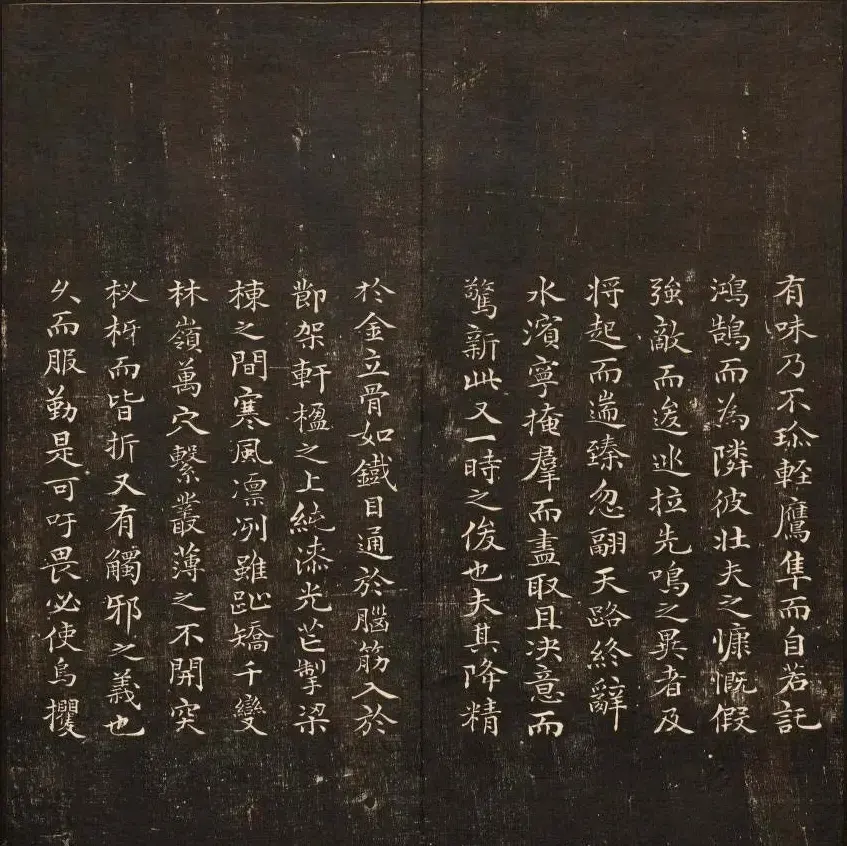 有味乃不珎輕鷹隼而自若託
鴻鵠而為隣彼壯夫之慷慨假
強敵而逡巡拉先鳴之異者及
将起而遄臻忽翮天路終辭
水濱寧掩羣而盡取且決意而
驚新此又一時之俊也夫其降精
於金立骨如鐵目通於腦筋入於
節架軒楹之上純漆光芒掣梁
棟之間寒風凛冽雖趾矯千變
林嶺萬穴繫叢薄之不開突
杈枒而皆折又有觸邪之義也
久而服勤是可吁畏必使烏攫